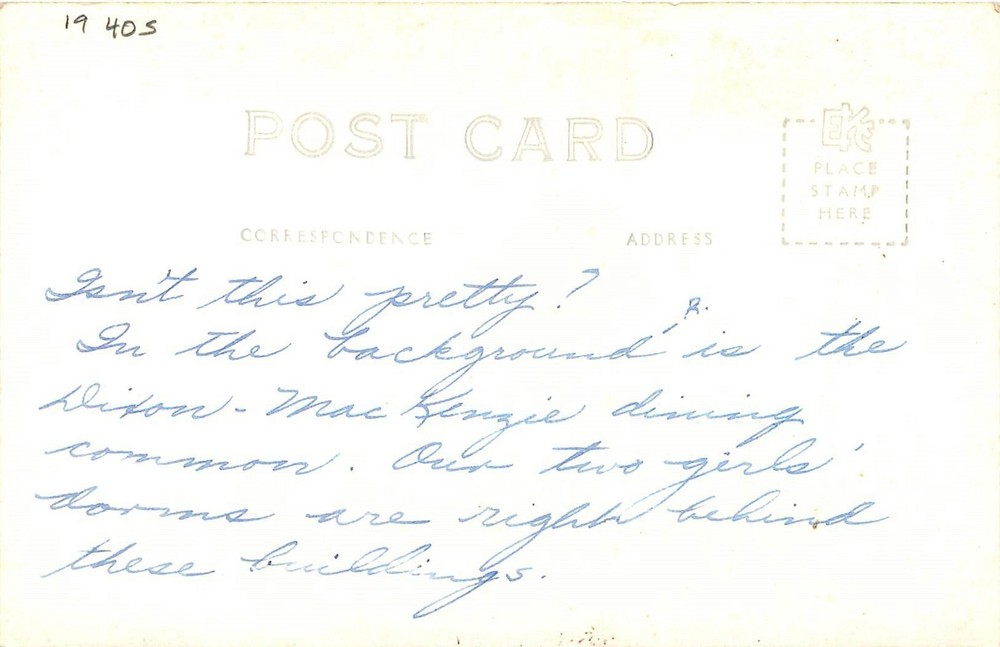 19 40s
POST CARD
EKC
PLACE
STAMP
HERE
CORRESPONDENCE
ADDRESS
Isn't this pretty?
R.
In the background, is the
Dixon-MacKenzie dining
common. Our two girls'
dorms are right behind
these buildings.